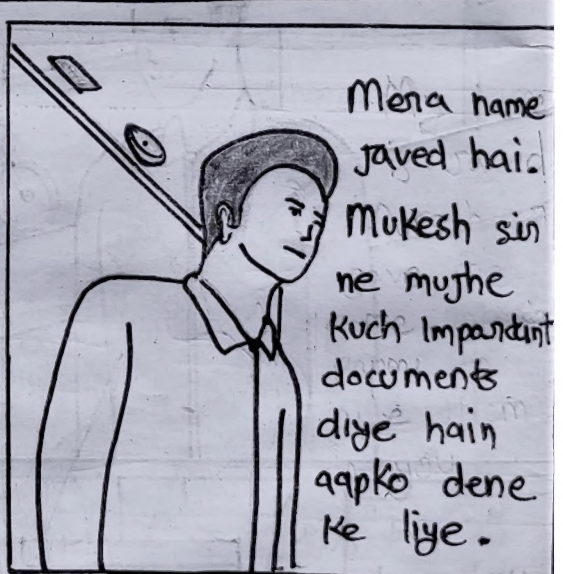 Mera name
Javed hai.
Mukesh sir
ne mujhe
kuch Impardant
documents
diye hain
aapko dene
ke liye.